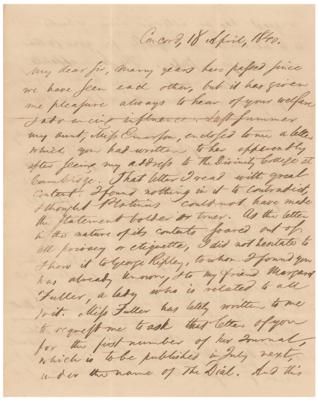 Concord, 18 April, 1840.
My dear Sir, Many years have passed since
we have seen each other, but it has given
me pleasure always to hear of your welfare
& advancing influence. Last summer
my aunt, Miss Emerson, enclosed to me a letter
which you had written to her apparently
after seeing my address to the Divinity College at
Cambridge. That letter I read with great
content. I found nothing in it to contradict,
& thought Plotinus could not have made
the statement bolder or truer. As the letter
in the nature of its contents soared out of
all privacy or etiquette, I did not hesitate to
show it to George Ripley, to whom I found you
was already known, & to my friend Margaret
Fuller, a lady who is related to all
Miss Fuller has lately written to me
to request me to ask that letter of you
for the first number of her Journal,
which is to be published in July next,
under the name of the Dial. And this